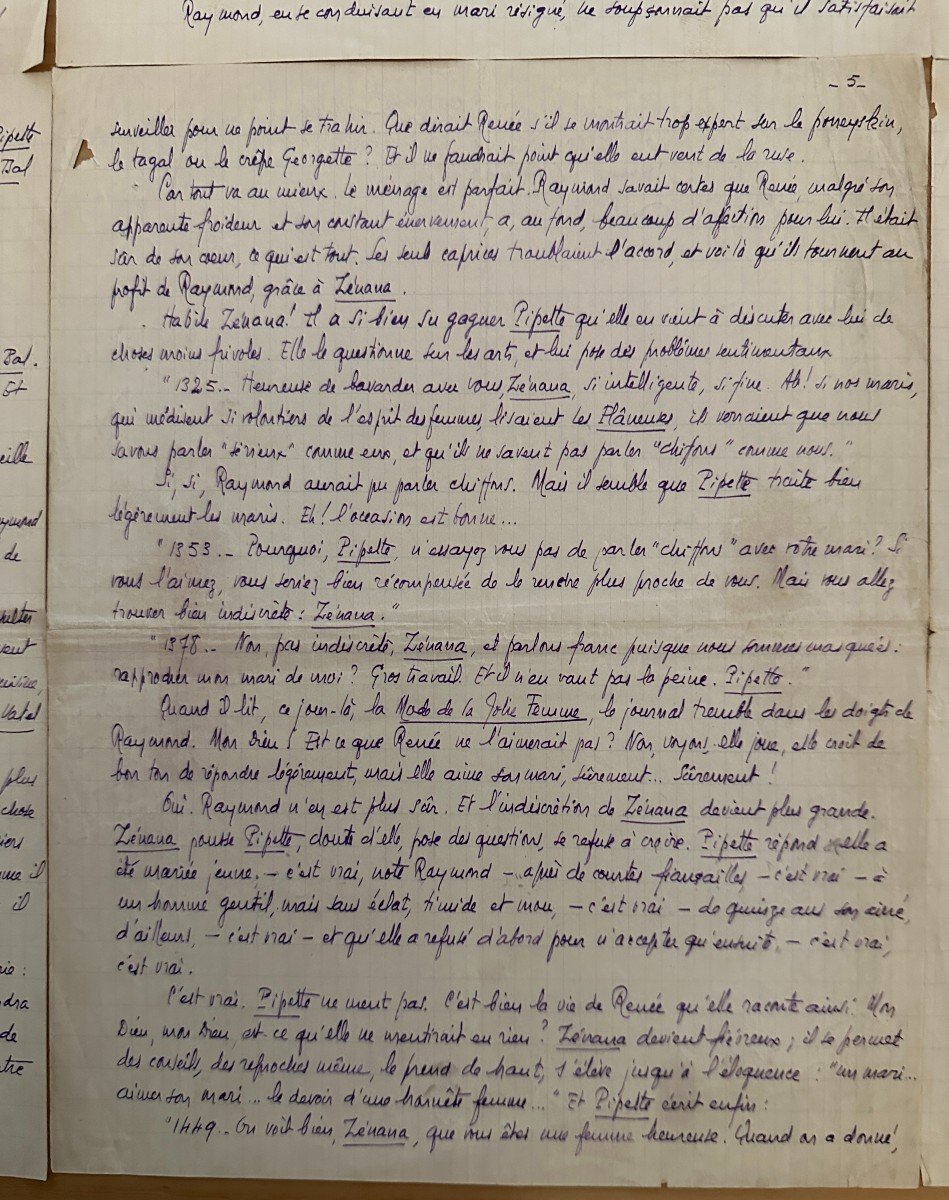 Raymond, en se conduisant en mari résigné, ne soupçonnait pas qu'il satisfaisait
- 5 -
surveiller pour ne point se trahir. Que dirait Renée s'il se montrait trop expert sur le poneyskin,
le tagal ou le crêpe Georgette ? Et il ne faudrait point qu'elle eut vent de la ruse.
Car tout va au mieux. Le ménage est parfait. Raymond savait certes que Renée, malgré son
apparente froideur et son constant énervement, a, au fond, beaucoup d'afection pour lui. Il était
sûr de son coeur, ce qui est tout. Ses seuls caprices troublaient l'accord, et voilà qu'ils tournent au
profit de Raymond, grâce à Zénana.
Habile Zénana ! Il a si bien su gagner Pipette qu'elle en vient à discuter avec lui de
choses moins frivoles. Elle le questionne sur les arts, et lui pose des problèmes sentimentaux
"1325.- Heureuse de bavarder avec vous, Zénana, si intelligente, si fine. Ah ! si nos maris,
qui médisent si volontiers de l'esprit des femmes, lisaient les Flâneuses, ils verraient que nous
savons parler "sérieux" comme eux, et qu'ils ne savent pas parler "chiffons" comme nous."
Si, si, Raymond aurait pu parler chiffons. Mais il semble que Pipette traite bien
légèrement les maris. Eh ! l'occasion est bonne...
"1353.- Pourquoi, Pipette, n'essayez vous pas de parler "chiffons" avec votre mari ? Si
vous l'aimez, vous seriez bien récompensée de le rendre plus proche de vous. Mais vous allez
trouver bien indiscrète : Zénana."
"1378.- Non, pas indiscrète, Zénana, et parlons franc puisque nous sommes masquées :
rapprocher mon mari de moi ? Gros travail. Et il n'en vaut pas la peine. Pipette."
Quand il lit, ce jour-là, la Mode de la Jolie Femme, le journal tremble dans les doigts de
Raymond. Mon Dieu ! Est ce que Renée ne l'aimerait pas ? Non, voyons, elle joue, elle croit de
bon ton de répondre légèrement, mais elle aime son mari, sûrement... Sûrement !
Oui. Raymond n'en est plus sûr. Et l'indiscrétion de Zénana devient plus grande.
Zénana pousse Pipette, doute d'elle, pose des question, se refuse à croire. Pipette répond elle a
été mariée jeune, - c'est vrai, note Raymond - après de courtes fiançailles - c'est vrai - à
un homme gentil, mais sans éclat, timide et mou, - c'est vrai - de quinze ans son aîné,
d'ailleurs, - c'est vrai - et qu'elle a refusé d'abord pour n'accepter qu'ensuite, - c'est vrai,
c'est vrai.
C'est vrai. Pipette ne ment pas. C'est bien la vie de Renée qu'elle raconte ainsi. Mon
Dieu, mon Dieu, est-ce qu'elle ne mentirait en rien ? Zénana devient fiévreux ; il se permet
des conseils, des reproches même, le prend de haut, s'élève jusqu'à l'éloquence : "un mari...
aimer son mari... le devoir d'une honnête femme..." Et Pipette écrit enfin :
"1449.- On voit bien, Zénana, que vous êtes une femme heureuse. Quand on a donné,
Pipette
Bal
Bal.
Et
de
plus
chose
il
de